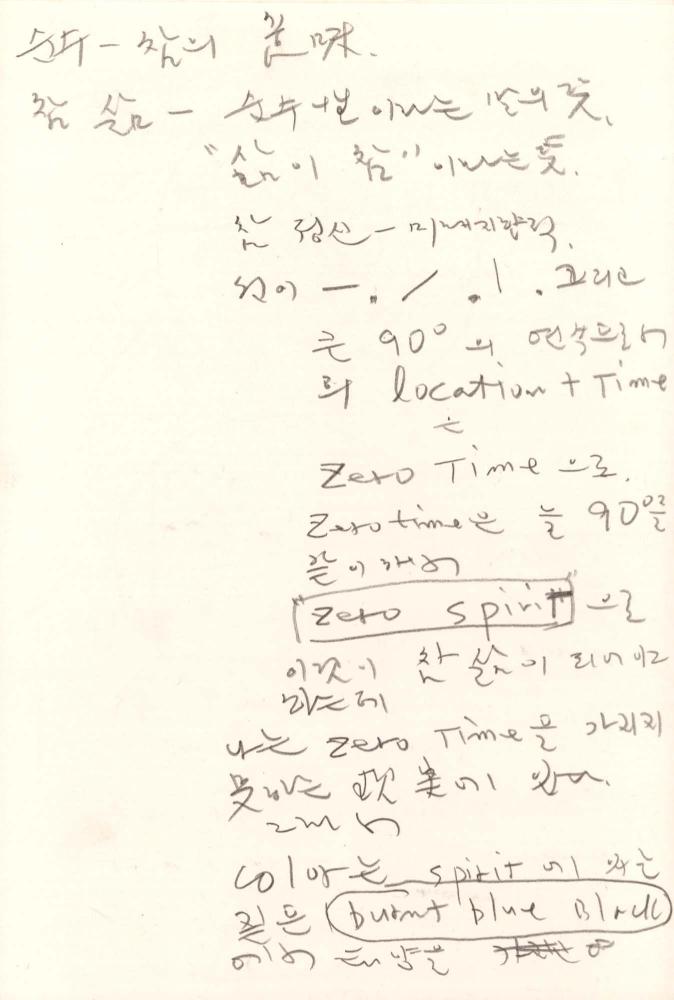 순수 – 참의 意味.
참 삶 – 순수성이라는 말의 뜻.
"삶이 참" 이라는 뜻.
참 정신 – 미래지향적.
선이 — . / . | . 그리고
큰 90° 의 연속으로서
의 location + Time
는
Zero Time 으로.
Zero time은 늘 90°을
"Zero spirit" 으로
이것이 참 삶이 되어 있고
나는 zero Time을 가지지
못하는 現実에 있다.
그래서
spirit에 있는
짙은 burnt blue Black
에서 태양을